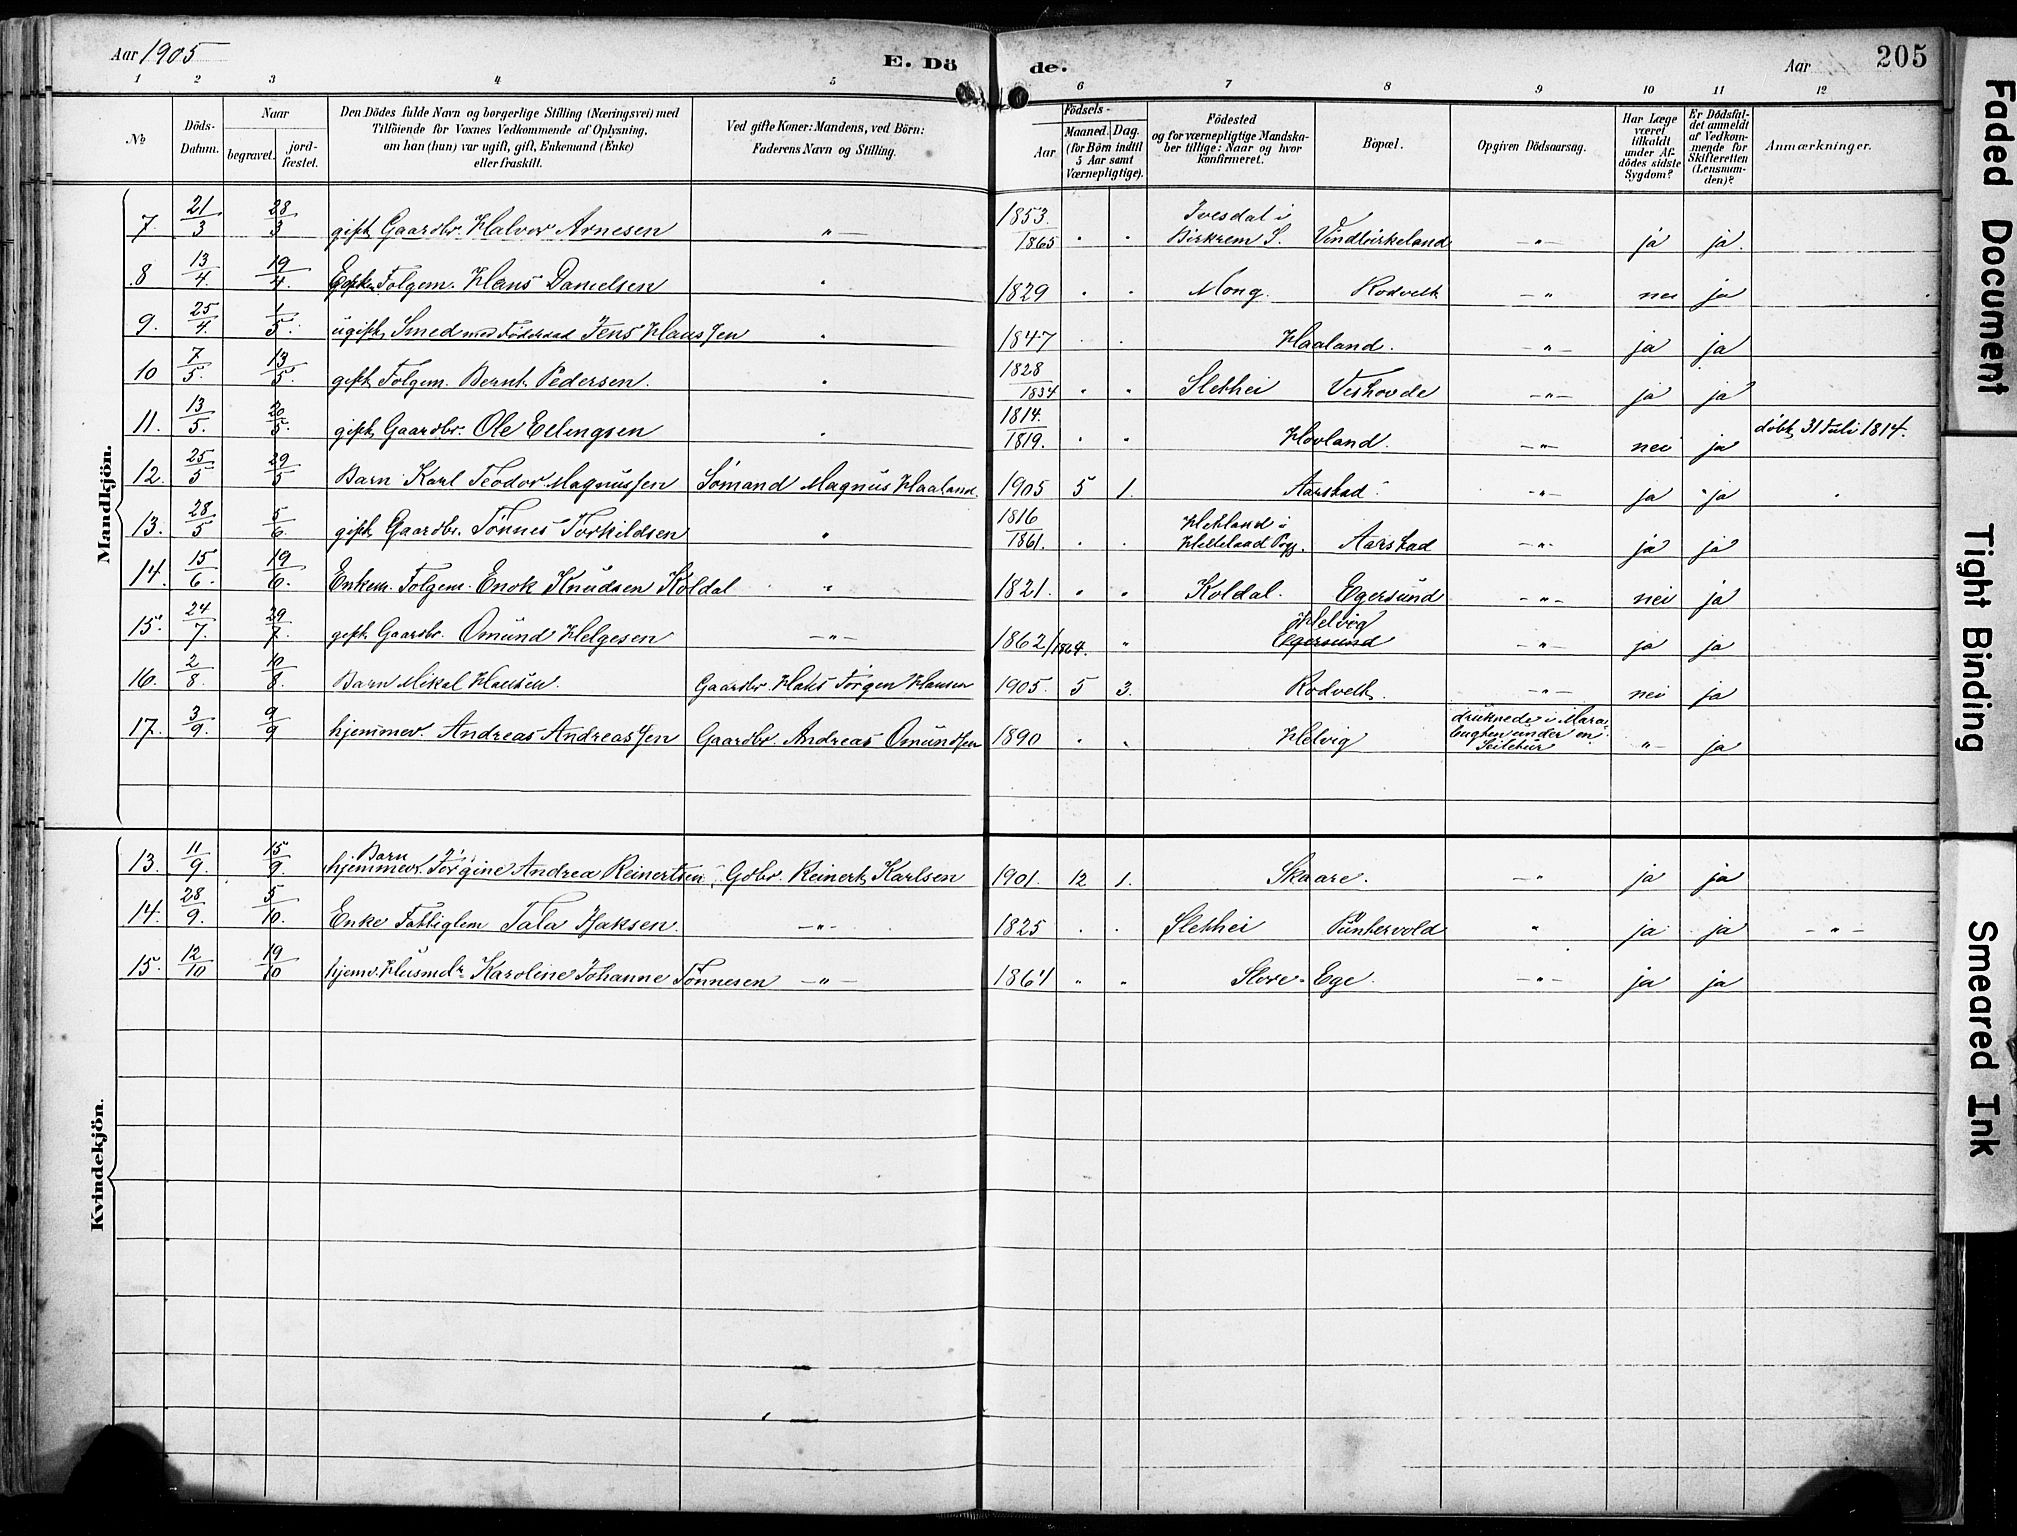 Aar 1905
E. Dö
de.
Aar
205
1 2 3 4 5 6 7 8 9 10 11 12
No
Döds-
Datum.
Naar
begravet.
jord-
fæstet.
Den Dödes fulde Navn og borgerlige Stilling (Næringsvei) med
Tilföiende for Voxnes Vedkommende af Oplysning,
om han (hun) var ugift, gift, Enkemand (Enke)
eller fraskilt.
Ved gifte Koner: Mandens, ved Börn:
Faderens Navn og Stilling.
Födsels-
Aar
Maaned.
Dag.
(for Börn indtil
5 Aar samt
Værnepligtige).
Födested
og for værnepligtige Mandska-
ber tillige: Naar og hvor
konfirmeret.
Bopæl.
Opgiven Dödsaarsag.
Har Læge
været
tilkaldt
under Af-
dödes sidste
Sygdom?
Er Dödsfal-
det anmeldt
af Vedkom-
mende for
Skifteretten
(Lensman-
den)?
Anmærkninger.
Mandkjön.
7. 21/3 28/3 gift Gaardbr. Halvor Arnesen " 1853/1865 " " Ivesdal i Birkrem S. Vindbirkeland " ja ja.
8 13/4 19/4 Folgem. Hans Danielsen " 1829 " " Mong. Rodvelt " nei ja
9. 25/4. 1/5. ugift Smed med Føderaad Jens Hanssen " 1847 " " Haaland. " ja ja
10 7/5. 13/5. gift Folgem. Bernt Pedersen. " 1828/1834 " " Slethei Veshovde " ja ja
11. 13/5. 20/5. gift Gaardbr. Ole Ellingsen " 1814./1819. " " Hovland. " nei ja døbt 31 Juli 1814.
12. 25/5 29/5 Barn Karl Teodor Magnussen Sømand Magnus Haaland. 1905 5 1. Aarstad. " ja ja
13. 28/5 5/6. gift Gaardbr. Tønnes Torkildsen " 1816/1861. " " Hetland i Helleland Pgj. Aarstad " ja ja
14. 15/6. 19/6. Enkem. Folgem. Enok Knudsen Koldal " 1821. " " Koldal. Egersund " nei ja
15. 24/7. 29/7. gift Gaardbr. Omund Helgesen " 1862/1864. " Helvig Egersund " ja ja
16. 2/8. 10/8. Barn Mikal Hansen. Gaardbr. Hans Jørgen Hansen 1905. 5 3. Rodvelt. " nei ja
17. 3/9. 9/9 hjemmev. Andreas Andreassen Gaardbr. Andreas Omundsen 1890 " " Helvig druknede i under en Seiltur " ja
Kvindekjön.
13. 11/9 15/9. Barn hjemmev. Jørgine Andrea Reinertsen Gdbr. Reinert Karlsen 1901. 12 1. Skaare. " ja ja
14. 28/9. 5/10. Enke Fattiglem Tala 1825 " " Slethei Puntervold " ja ja "
15. 12/10 19/10 hjemv. Husmdr Karoline Johanne Tønnesen " 1864 " " Store-Ege. " ja ja
Faded Document
Tight Binding
Smeared Ink